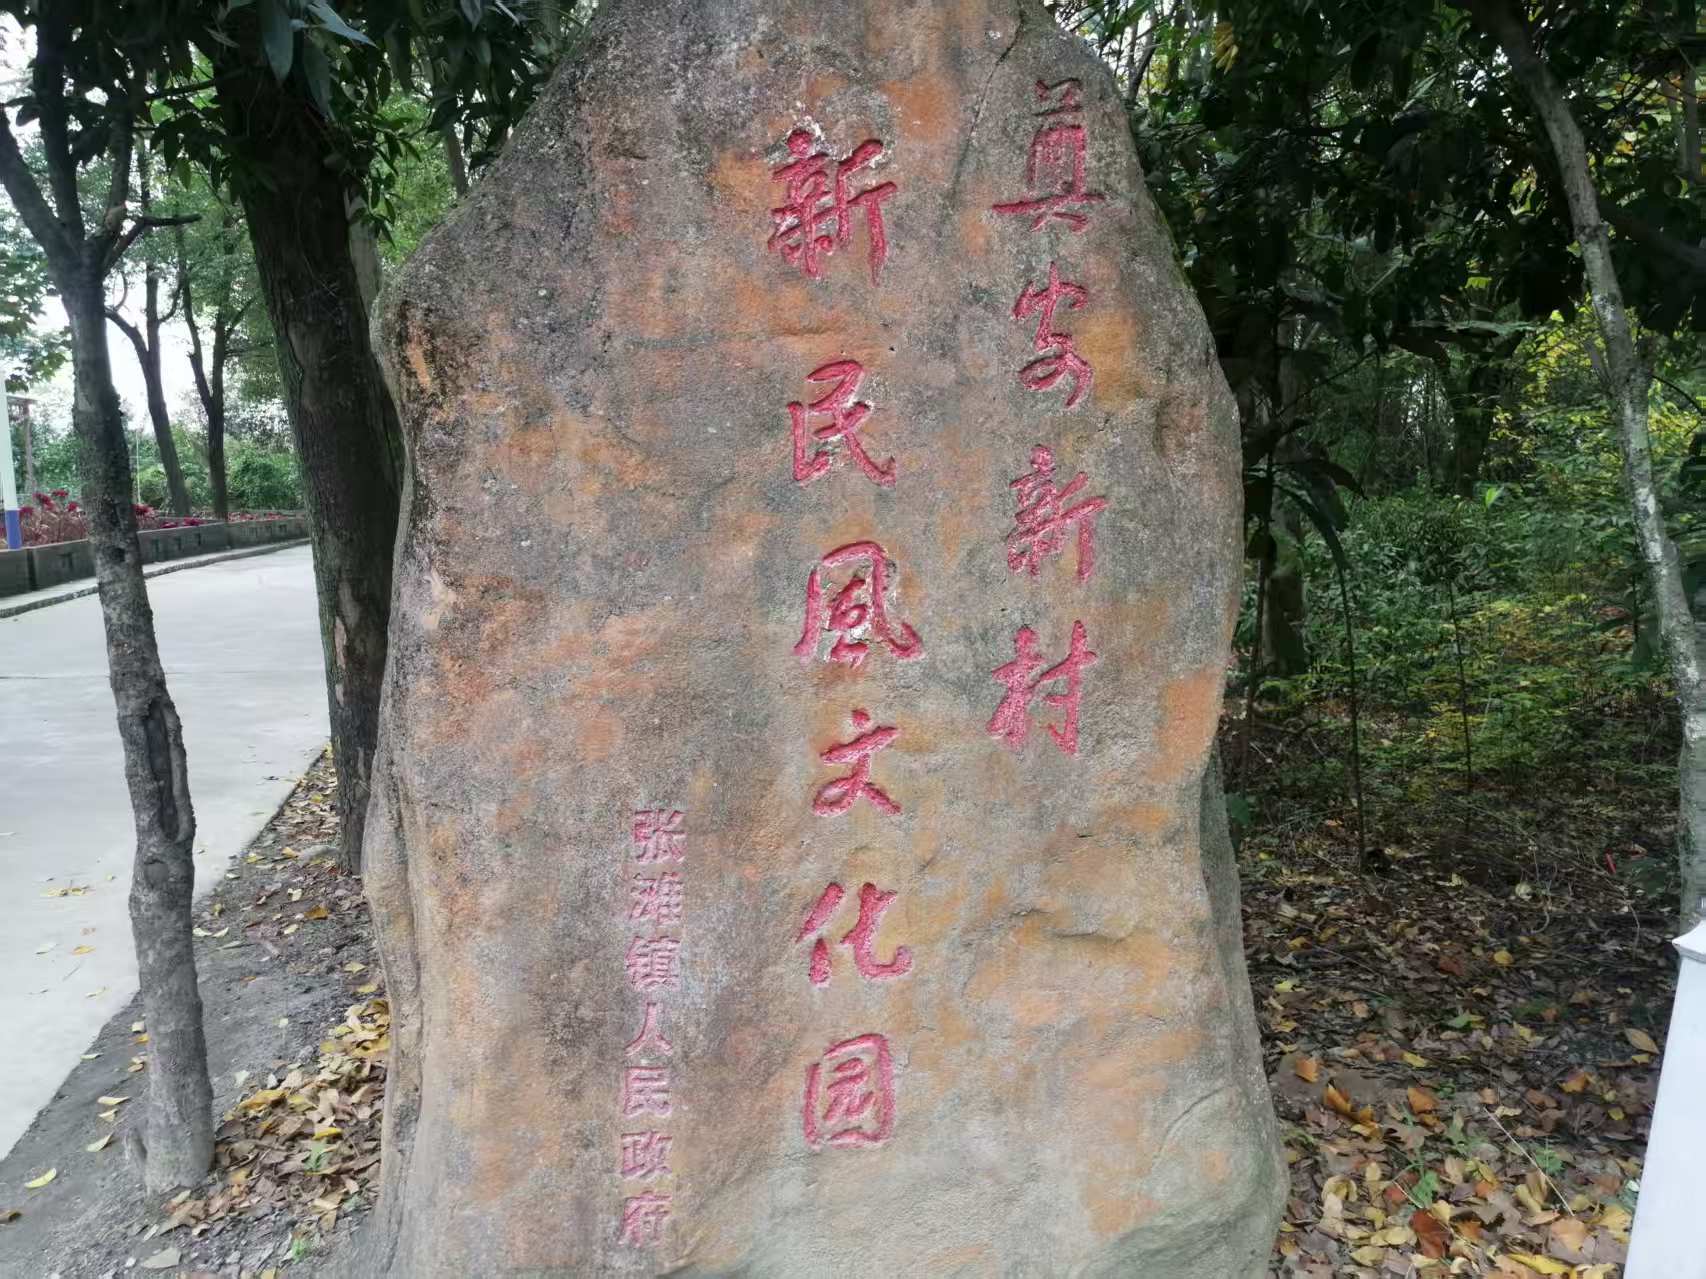 奠安新村
新民風文化园
张滩镇人民政府